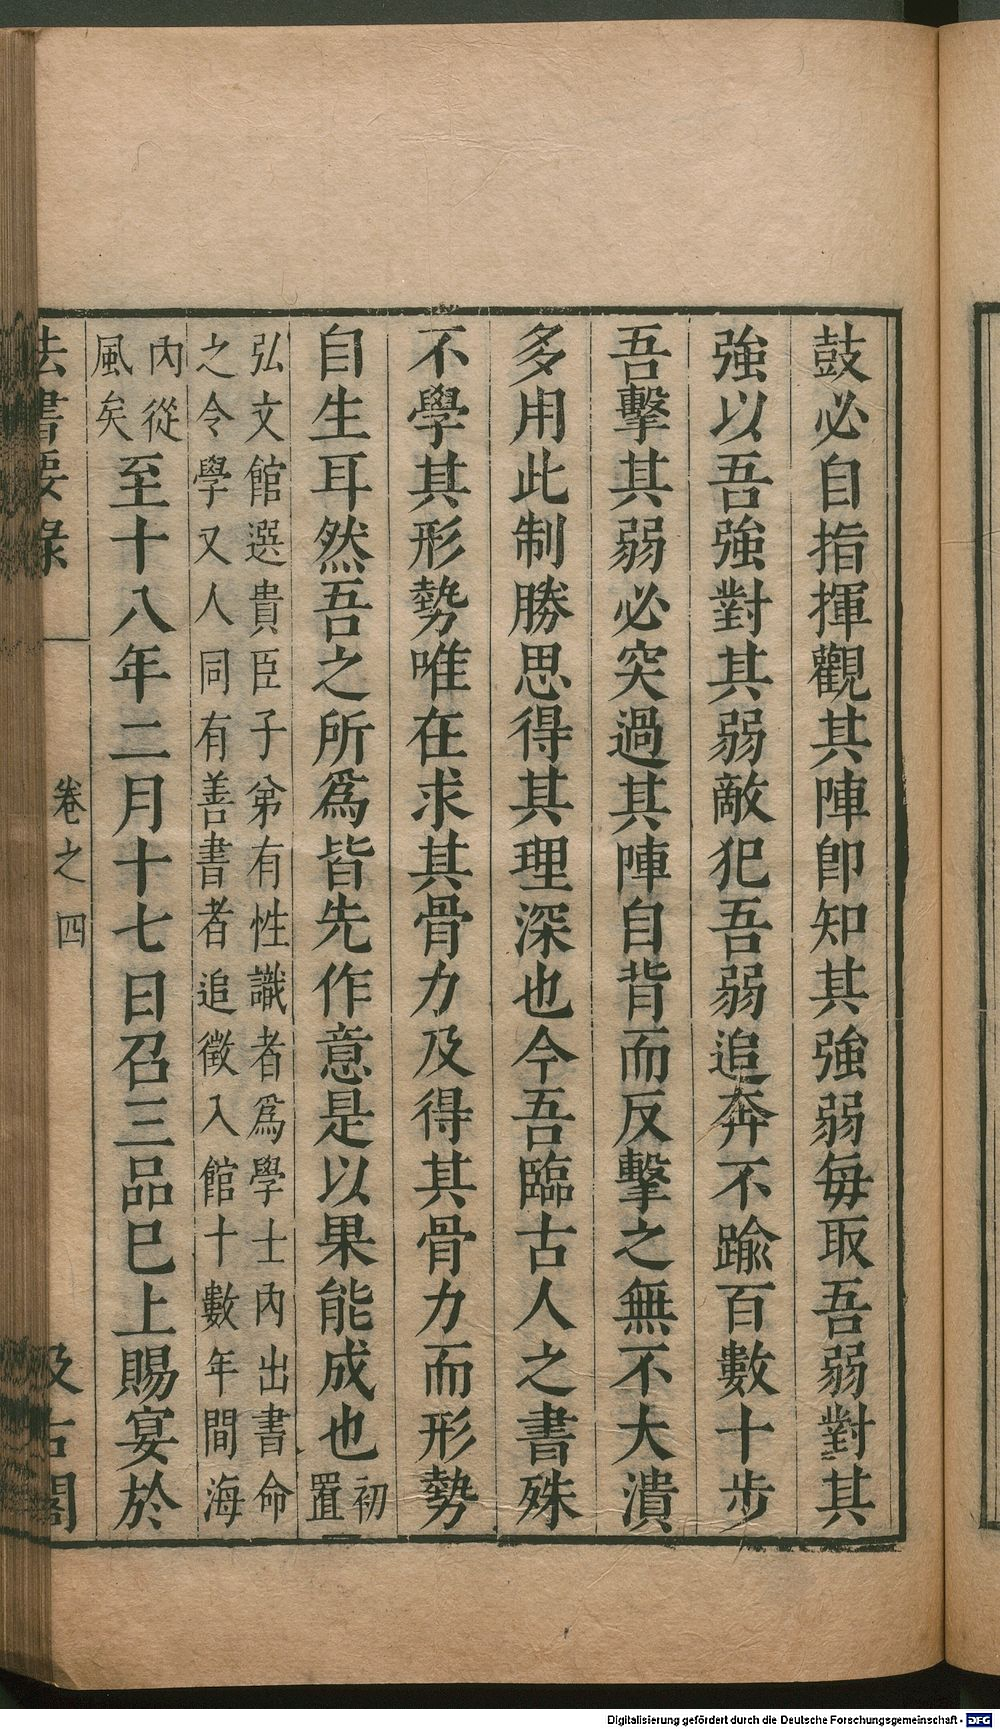 鼓必自指揮觀其陣卽知其強弱每取吾弱對其
強以吾強對其弱敵犯吾弱追奔不踰百數十步
吾擊其弱必突過其陣自背而反擊之無不大潰
多用此制勝思得其理深也今吾臨古人之書殊
不學其形勢唯在求其骨力及得其骨力而形勢
自生耳然吾之所爲皆先作意是以果能成也初置
弘文館選貴臣子弟有性識者爲學士內出書命
之令學又人間有善書者追徵入館十數年間海
內從風矣至十八年二月十七日召三品已上賜宴於
法書要錄 卷之四 汲古閣
Digitalisierung gefördert durch die Deutsche Forschungsgemeinschaft - DFG